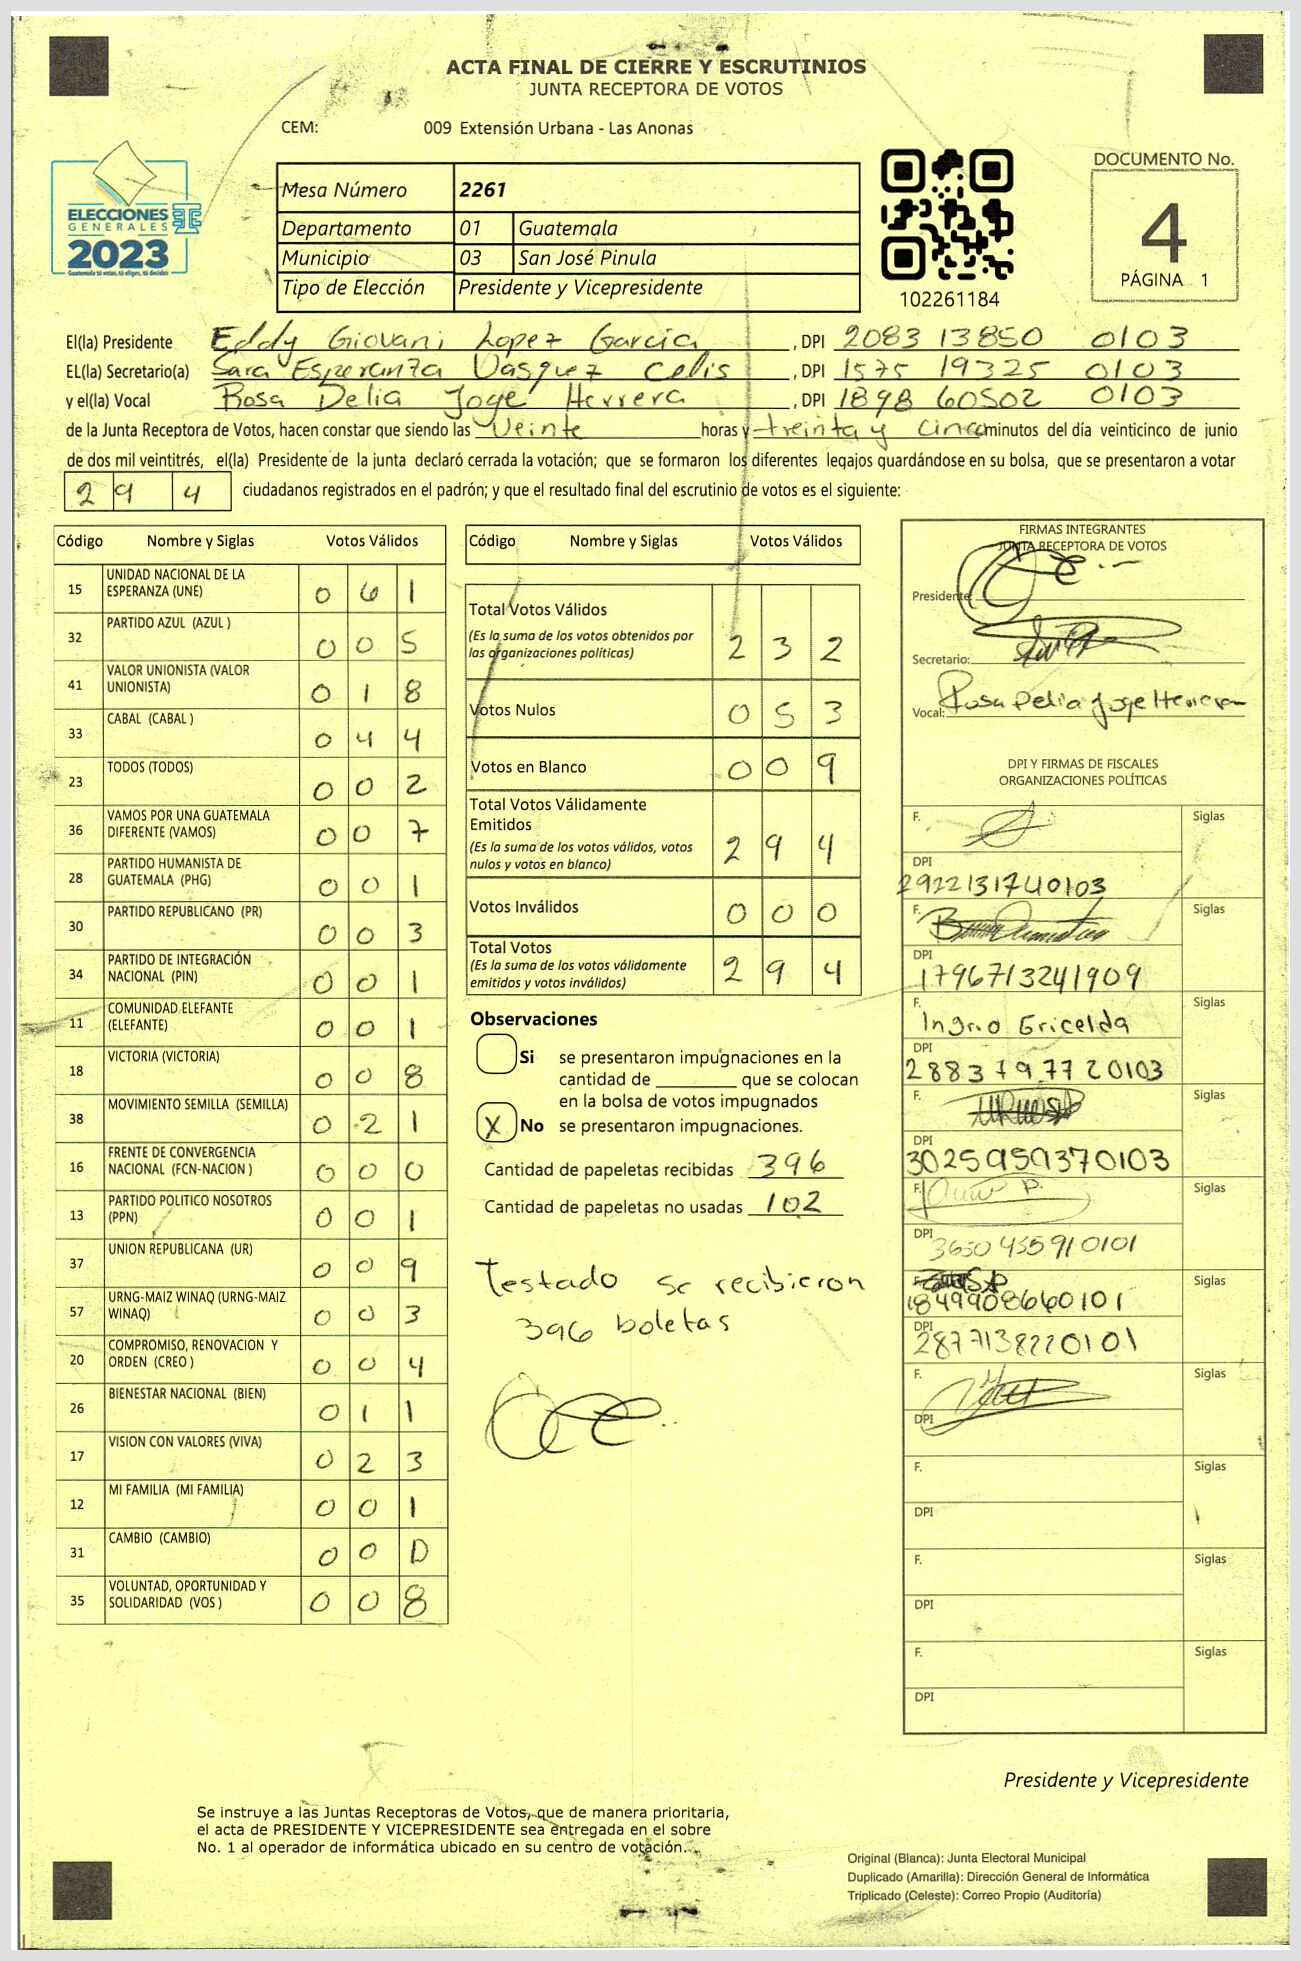 ACTA FINAL DE CIERRE Y ESCRUTINIOS
JUNTA RECEPTORA DE VOTOS
CEM: 009 Extensión Urbana - Las Anonas
ELECCIONES
GENERALES
2023
Guatemala tú votas, tú eliges, tú decides
Mesa Número 2261
Departamento 01 Guatemala
Municipio 03 San José Pinula
Tipo de Elección Presidente y Vicepresidente
102261184
DOCUMENTO No.
4
PÁGINA 1
El(la) Presidente Eddy Giovani Lopez Garcia, DPI 2083 13850 0103
EL(la) Secretario(a) Sara Esperanza Vasquez Celis, DPI 1575 19325 0103
y el(la) Vocal Rosa Delia Joge Herrera, DPI 1898 60502 0103
de la Junta Receptora de Votos, hacen constar que siendo las Veinte horas y treinta y cinco minutos del día veinticinco de junio
de dos mil veintitrés, el(la) Presidente de la junta declaró cerrada la votación; que se formaron los diferentes legajos guardándose en su bolsa, que se presentaron a votar
2 9 4 ciudadanos registrados en el padrón; y que el resultado final del escrutinio de votos es el siguiente:
Código Nombre y Siglas Votos Válidos
15 UNIDAD NACIONAL DE LA ESPERANZA (UNE) 0 6 1
32 PARTIDO AZUL (AZUL ) 0 0 5
41 VALOR UNIONISTA (VALOR UNIONISTA) 0 1 8
33 CABAL (CABAL ) 0 4 4
23 TODOS (TODOS) 0 0 2
36 VAMOS POR UNA GUATEMALA DIFERENTE (VAMOS) 0 0 7
28 PARTIDO HUMANISTA DE GUATEMALA (PHG) 0 0 1
30 PARTIDO REPUBLICANO (PR) 0 0 3
34 PARTIDO DE INTEGRACIÓN NACIONAL (PIN) 0 0 1
11 COMUNIDAD ELEFANTE (ELEFANTE) 0 0 1
18 VICTORIA (VICTORIA) 0 0 8
38 MOVIMIENTO SEMILLA (SEMILLA) 0 2 1
16 FRENTE DE CONVERGENCIA NACIONAL (FCN-NACION ) 0 0 0
13 PARTIDO POLITICO NOSOTROS (PPN) 0 0 1
37 UNION REPUBLICANA (UR) 0 0 9
57 URNG-MAIZ WINAQ (URNG-MAIZ WINAQ) 0 0 3
20 COMPROMISO, RENOVACION Y ORDEN (CREO ) 0 0 4
26 BIENESTAR NACIONAL (BIEN) 0 1 1
17 VISION CON VALORES (VIVA) 0 2 3
12 MI FAMILIA (MI FAMILIA) 0 0 1
31 CAMBIO (CAMBIO) 0 0 0
35 VOLUNTAD, OPORTUNIDAD Y SOLIDARIDAD (VOS ) 0 0 8
Código Nombre y Siglas Votos Válidos
Total Votos Válidos
(Es la suma de los votos obtenidos por las organizaciones políticas) 2 3 2
Votos Nulos 0 5 3
Votos en Blanco 0 0 9
Total Votos Válidamente Emitidos
(Es la suma de los votos válidos, votos nulos y votos en blanco) 2 9 4
Votos Inválidos 0 0 0
Total Votos
(Es la suma de los votos válidamente emitidos y votos inválidos) 2 9 4
Observaciones
Si se presentaron impugnaciones en la
cantidad de ________ que se colocan
en la bolsa de votos impugnados
X No se presentaron impugnaciones.
Cantidad de papeletas recibidas 396
Cantidad de papeletas no usadas 102
Testado se recibieron
396 boletas
FIRMAS INTEGRANTES
JUNTA RECEPTORA DE VOTOS
Presidente:
Secretario:
Vocal: Rosa Delia Joge Herrera
DPI Y FIRMAS DE FISCALES
ORGANIZACIONES POLÍTICAS
F. Siglas
DPI
2922131740103
F. Siglas
DPI
1796713241909
F. Siglas
Ingrid Gricelda
DPI
2883797720103
F. Siglas
DPI
3025959370103
F. Siglas
DPI
3650435910101
F. Siglas
1849908660101
DPI
2877138220101
F. Siglas
DPI
F. Siglas
DPI
F. Siglas
DPI
F. Siglas
DPI
Presidente y Vicepresidente
Se instruye a las Juntas Receptoras de Votos, que de manera prioritaria,
el acta de PRESIDENTE Y VICEPRESIDENTE sea entregada en el sobre
No. 1 al operador de informática ubicado en su centro de votación.
Original (Blanca): Junta Electoral Municipal
Duplicado (Amarilla): Dirección General de Informática
Triplicado (Celeste): Correo Propio (Auditoría)